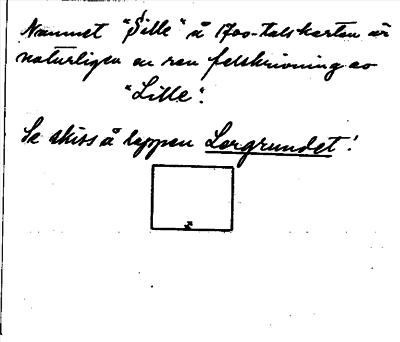 Namnet "Sille" å 1700-talskartan är
naturligen en ren felskrivning av
"Lille".
Se skiss å lappen Lorgrundet!